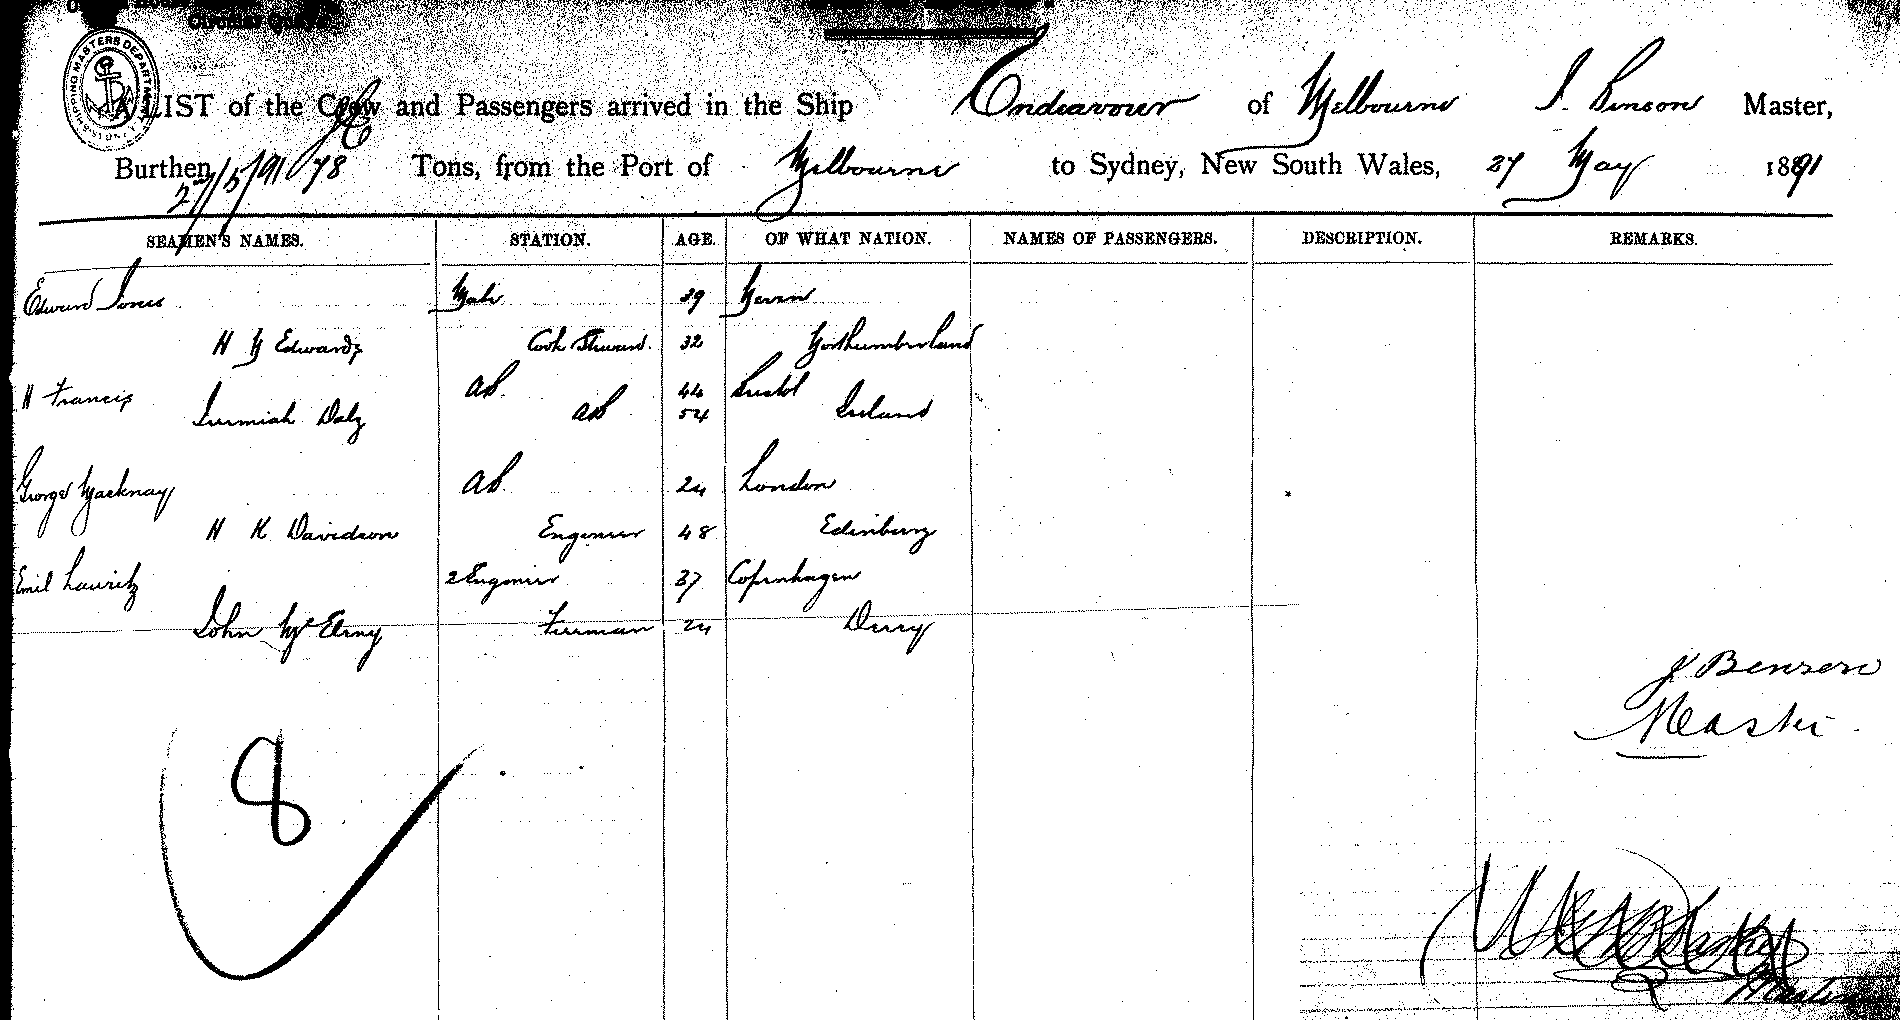 SHIPPING MASTERS DEPARTMENT SYDNEY
A LIST of the Crew and Passengers arrived in the Ship Endeavour of Melbourne J. Benson Master,
Burthen 78 Tons, from the Port of Melbourne to Sydney, New South Wales, 27 May 1891
27/5/91
SEAMEN'S NAMES. STATION. AGE. OF WHAT NATION. NAMES OF PASSENGERS. DESCRIPTION. REMARKS.
Edward Jones Mate 39
H M Edwards Cook Steward 32 Northumberland
H Francis AB 44 Bristol
Jermiah Daly AB 54 Ireland
George Macknay AB 24 London
H K Davidson Engenier 48 Edinburg
Emil Lauritz 2 Engenier 37 Copenhagen
John McElroy Fireman 24 Derry
J Benson
Master
8